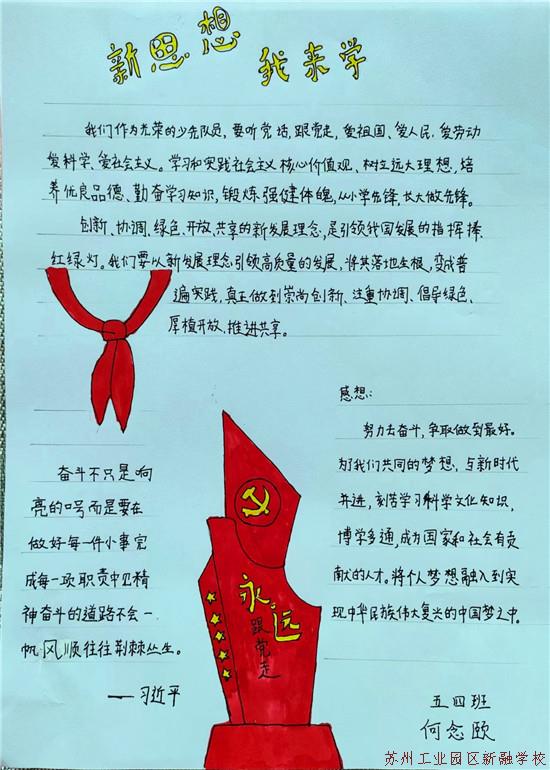 新思想
我来学
我们作为光荣的少先队员,要听党话,跟党走,爱祖国、爱人民、爱劳动
爱科学、爱社会主义。学习和实践社会主义核心价值观、树立远大理想,培
养优良品德、勤奋学习知识,锻炼强健体魄,从小学先锋,长大做先锋。
创新、协调、绿色、开放、共享的新发展理念,是引领我国发展的指挥棒、
红绿灯。我们要以新发展理念引领高质量的发展,将其落地生根,变成普
遍实践,真正做到崇尚创新、注重协调、倡导绿色、
厚植开放、推进共享。
感想:
努力去奋斗,争取做到最好。
为了我们共同的梦想,与新时代
并进,刻苦学习科学文化知识,
博学多通,成为国家和社会有贡
献的人才。将个人梦想融入到实
现中华民族伟大复兴的中国梦之中。
奋斗不只是响
亮的口号而是要在
做好每一件小事完
成每一项职责中
精
神奋斗的道路不会一
帆风顺往往荆棘丛生。
——习近平
永远
跟党走
五四班
何念颐
苏州工业园区新融学校